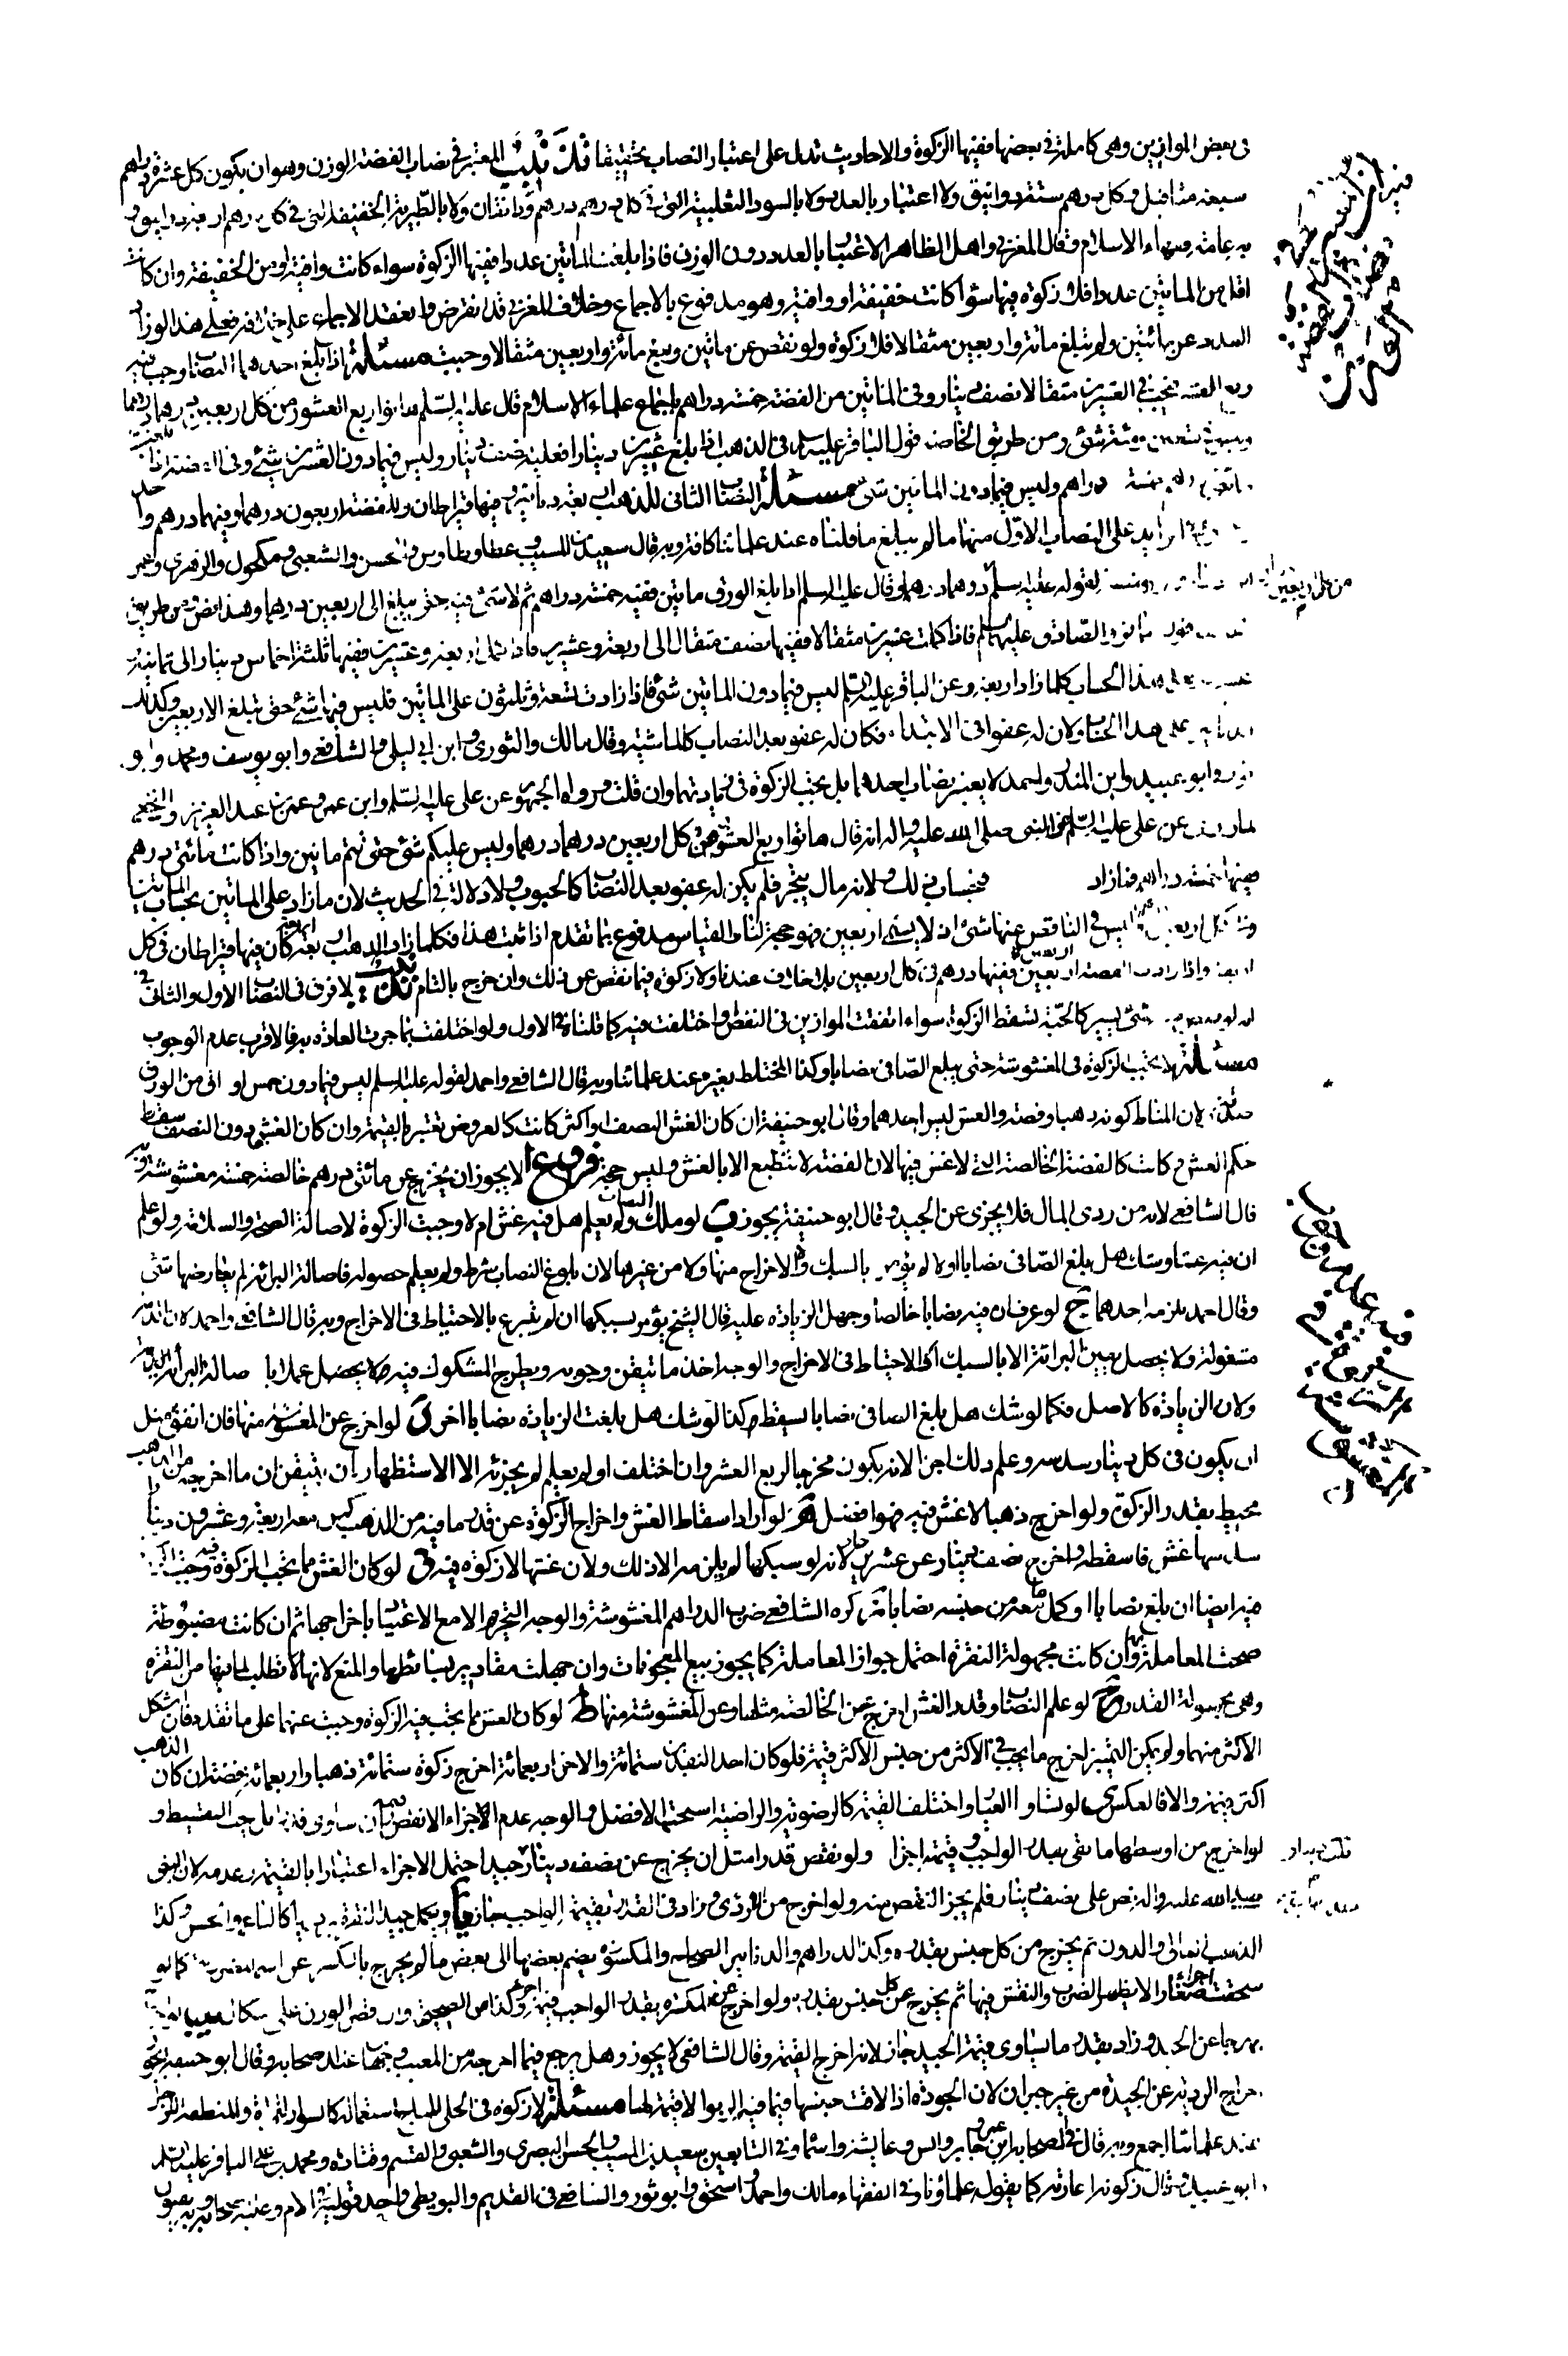 فى بعض الموازين وهى كاملة فى بعضها ففيها الزكوة والاحاديث تدل على اعتبار النصاب تحقيقا تذنيب المعتبر فى نصاب الفضة الوزن وهو ان يكون كل عشرة دراهم
سبعة مثاقيل وكل درهم ستة دوانيق ولا اعتبار بالعدد ولا بالسود البغلية التى فى كل درهم درهم ودانقان ولا بالطبرية الخفيفة التى فى كل درهم اربعة دوانيق
به عامة فقهاء الاسلام وقال المغربى واهل الظاهر الاعتبار بالعدد دون الوزن فاذا بلغت المأتين عددا ففيها الزكوة سواء كانت وافية او من الخفيفة وان كانت
اقل من المأتين عددا فلا زكوة فيها سواء كانت خفيفة او وافية وهو مدفوع بالاجماع وخلاف المغربى قد انقرض وانعقد الاجماع على خلافه فعلى هذا لو زاد
العدد عن مأتين ولم تبلغ مائة واربعين مثقالا فلا زكوة ولو نقص عن مأتين وبلغ مائة واربعين مثقالا وجبت مسئلة اذا بلغ احدهما النصاب وجب فيه
ربع العشر فيجب فى العشرين مثقالا نصف دينار وفى المأتين من الفضة خمسة دراهم باجماع علماء الاسلام قال عليه السلم هاتوا ربع العشور من كل اربعين درهما درهما
وليس فى تسعين ومائة شئ ومن طريق الخاصة قول الباقر عليه السلم فى الذهب اذا بلغ عشرين دينارا فعليه نصف دينار وليس فيما دون العشرين شئ وفى الفضة اذا بلغت
مأتى درهم خمسة دراهم وليس فيما دون المأتين شئ مسئلة النصاب الثانى للذهب اربعة دنانير وفيها قيراطان وللفضة اربعون درهما وفيها درهم واحد
زايد على النصاب الاول منهما ما لم يبلغ ما قلناه عند علمائنا كافة وبه قال سعيد بن المسيب وعطا وطاوس والحسن والشعبى ومكحول والزهرى وعمر
لقوله عليه السلم درهما درهما وقال عليه السلم اذا بلغ الورق مأتين ففيه خمسة دراهم ثم لا شئ فيه حتى يبلغ الى اربعين درهما وهذا نص ومن طريق
الصادق عليه السلم فاذا كملت عشرين مثقالا ففيها نصف مثقال الى اربعة وعشرين فاذا كملت اربعة وعشرين ففيها ثلثة اخماس دينار الى ثمانية
فعلى هذا الحساب كلما زاد اربعة وعن الباقر عليه السلم ليس فيما دون المأتين شئ فاذا زادت تسعة وثلثون على المأتين فليس فيها شئ حتى تبلغ الاربعين وكذلك
على هذا الحساب ولان له عفوا فى الابتداء فكان له عفو بعد النصاب كالماشية وقال مالك والثورى وابن ابى ليلى والشافعى وابو يوسف ومحمد وابو
ثور وابو عبيد وابن المنذر واحمد لا يعتبر نصاب احدهما بل يجب الزكوة فى زيادتهما وان قلت ورواه الجمهور عن على عليه السلم وابن عمر وعمر بن عبد العزيز والنخعى
لما روى عن على عليه السلم عن النبى صلى الله عليه وآله انه قال هاتوا ربع العشور من كل اربعين درهما درهما وليس عليكم شئ حتى يتم مأتين واذا كانت مائتى درهم
ففيها خمسة دراهم فما زاد فبحساب ذلك ولانه مال يتجر فلم يكن له عفو بعد النصاب كالحبوب ولا دلالة فى الحديث لان ما زاد على المأتين بحساب المأتين
ليس فى الناقص عنها شئ اذ لا يسمى اربعين فهو حجة لنا والقياس مدفوع بما تقدم اذا ثبت هذا فكلما زاد الذهب اربعة كان فيها قيراطان فى كل
اربعة واذا زادت الفضة اربعين ففيها درهم فى كل اربعين بلا خلاف عندنا ولا زكوة فيما نقص عن ذلك وان خرج بالتام تذنيب لا فرق فى النصاب الاول والثانى فى
شئ يسير كالحبة تسقط الزكوة سواء اتفقت الموازين فى النقص او اختلفت فيه كما قلناه فى الاول ولو اختلفت بما جرت العادة به فالاقرب عدم الوجوب
مسئلة لا تجب الزكوة فى المغشوشة حتى يبلغ الصافى نصابا وكذا المختلط بغيره عند علمائنا وبه قال الشافعى واحمد لقوله عليه السلم ليس فيما دون خمس اواقى من الورق
صدقة لان المناط كونه ذهبا وفضة والغش ليس احدهما وقال ابو حنيفة ان كان الغش النصف او اكثر كانت كالعروض تعتبر بالقيمة وان كان الغش دون النصف سقط
حكم الغش وكانت كالفضة الخالصة التى لا غش فيها لان الفضة لا تنطبع الا بالغش وليس حجة فروع ا لا يجوز ان يخرج عن مائتى درهم خالصة خمسة مغشوشة وبه
قال الشافعى لانه من ردى المال فلا يجزى عن الجيد وقال ابو حنيفة يجوز ب لو ملك النصاب ولم يعلم هل فيه غش ام لا وجبت الزكوة لاصالة الصحة والسلامة ولو علم
ان فيه غشا وشك هل بلغ الصافى نصابا او لا لم يؤمر بالسبك ولا الاخراج منها ولا من غيرها لان بلوغ النصاب شرط ولم يعلم حصوله فاصالة البرائة لم يعارضها شئ
وقال احمد يلزمه احدهما ج لو عرف ان فيه نصابا خالصا وجهل الزيادة عليه قال الشيخ يؤمر بسبكها ان لم يتبرع بالاحتياط فى الاخراج وبه قال الشافعى واحمد لان الذمة
مشغولة ولا يحصل يقين البرائة الا بالسبك او الاحتياط فى الاخراج والوجه اخذ ما تيقن وجوبه ويطرح المشكوك فيه ولا يحصل عملا باصالة البرائة
ولان الزيادة كالاصل فكما لو شك هل بلغ الصافى نصابا يسقط وكذا لو شك هل بلغت الزيادة نصابا اخر د لو اخرج عن المغشوشة منها فان اتفق مثل
ان يكون فى كل دينار سدسه وعلم ذلك اجزا لانه يكون مخرجا لربع العشر وان اختلف او لم يعلم لم يجزئه الا الاستظهار ان يتيقن ان ما اخرجه من الذهب
محيط بقدر الزكوة ولو اخرج ذهبا لا غش فيه فهو افضل ه لو اراد اسقاط الغش واخراج الزكوة عن قدر ما فيه من الذهب كمن معه اربعة وعشرون دينارا
سدسها غش فاسقطه واخرج نصف دينار عن عشرين جاز لانه لو سبكها لم يلزمه الا ذلك ولان غشها لا زكوة فيه و لو كان الغش مما يجب الزكوة فيه وجبت
فيه ايضا ان بلغ نصابا او كمل ما معه من جنسه نصابا ز كره الشافعى ضرب الدراهم المغشوشة والوجه التحريم الا مع الاعتياد باخراجها ثم ان كانت مضبوطة
صحت المعاملة بها وان كانت مجهولة النقرة احتمل جواز المعاملة كما يجوز بيع المعجونات وان جهلت مقادير بسائطها والمنع لانها لا تطلب لما فيها من النقرة
وهى مجهولة القدر ح لو علم النصاب وقدر الغش اخرج عن الخالصة مثلها وعن المغشوشة منها ط لو كان الغش مما يجب فيه الزكوة وجبت عنهما على ما تقدم فان اشكل
الاكثر منهما ولم يمكن التمييز اخرج ما يجب فى الاكثر من جنس الاكثر قيمة فلو كان احد النقدين ستمائة والاخر اربعمائة اخرج زكوة ستمائة ذهبا واربعمائة فضة ان كان الذهب
اكثر قيمة والا فالعكس ى لو تساوى العيار واختلف القيمة كالرضوية والراضية استحب الافضل والوجه عدم الاجزاء الا نقص بل يجب التقسيط و
لو اخرج من اوسطها ما يفى بقدر الواجب وقيمته اجزا ولو نقص قدرا مثل ان يخرج عن نصف دينار جيد احتمل الاجزاء اعتبارا بالقيمة وعدمه لان النبى
صلى الله عليه واله نص على نصف دينار فلم يجز النقص منه ولو اخرج من الردى وزاد فى القدر بقيمة الواجب جاز يا ويكمل جيد النقرة برديها كالناعم والخشن وكذا
الذهب العالى والدون ثم يخرج من كل جنس بقدره وكذا الدراهم والدنانير الصحاح والمكسرة يضم بعضها الى بعض ما لم يخرج بالكسر عن اسم المضروبة كما لو
سحقت اجزاء صغارا لا يظهر الضرب والنقش فيها ثم يخرج عن كل جنس بقدره ولو اخرج عن المكسرة بقدر الواجب قيمة اجزء وكذا من الصحيحة
بهرجا عن الجيد وزاد بقدر ما يساوى قيمة الجيد جاز لانه اخرج القيمة وقال الشافعى لا يجوز وهل يرجع فيما اخرجه من المعيب وجهان عند اصحابه وقال ابو حنيفة يجوز
اخراج الردية عن الجيدة من غير جبران لان الجودة اذا لاقت جنسها فيما فيه الربوا لا قيمة لها مسئلة لا زكوة فى الحلى المباح استعماله كالسوار للمرأة والمنطقة للرجل
عند علمائنا اجمع وبه قال فى الصحابة ابن عمر وجابر وانس وعايشة واسماء وفى التابعين سعيد بن المسيب والحسن البصرى والشعبى والقسم وقتادة ومحمد بن على الباقر عليه السلم
وابو عبيد وقال زكوته اعارته كما يقوله علماؤنا وفى الفقهاء مالك واحمد واسحق وابو ثور والشافعى فى القديم والبويطى واحد قوليه فى الام وعليه اصحابه وبه يفتون